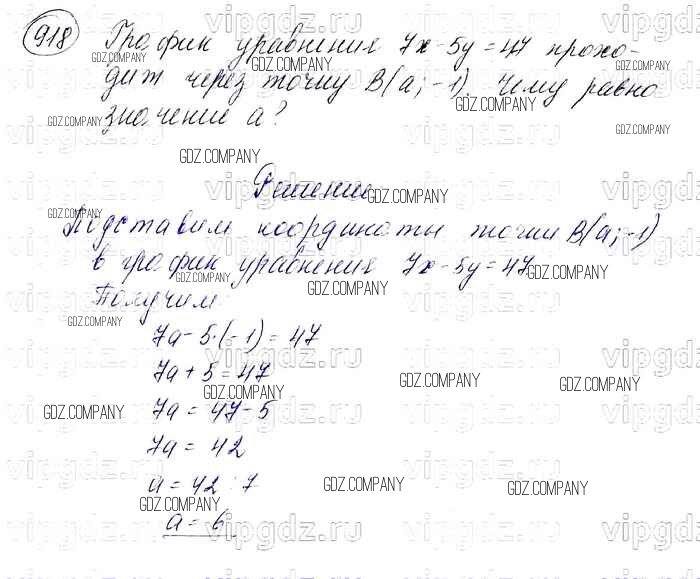 918 График уравнения 7x - 5y = 47 прохо-
дит через точку B(a; -1). Чему равно
значение a?
Решение
Подставим координаты точки B(a; -1)
в график уравнения 7x - 5y = 47
Получим:
7a - 5·(-1) = 47
7a + 5 = 47
7a = 47 - 5
7a = 42
a = 42 : 7
a = 6